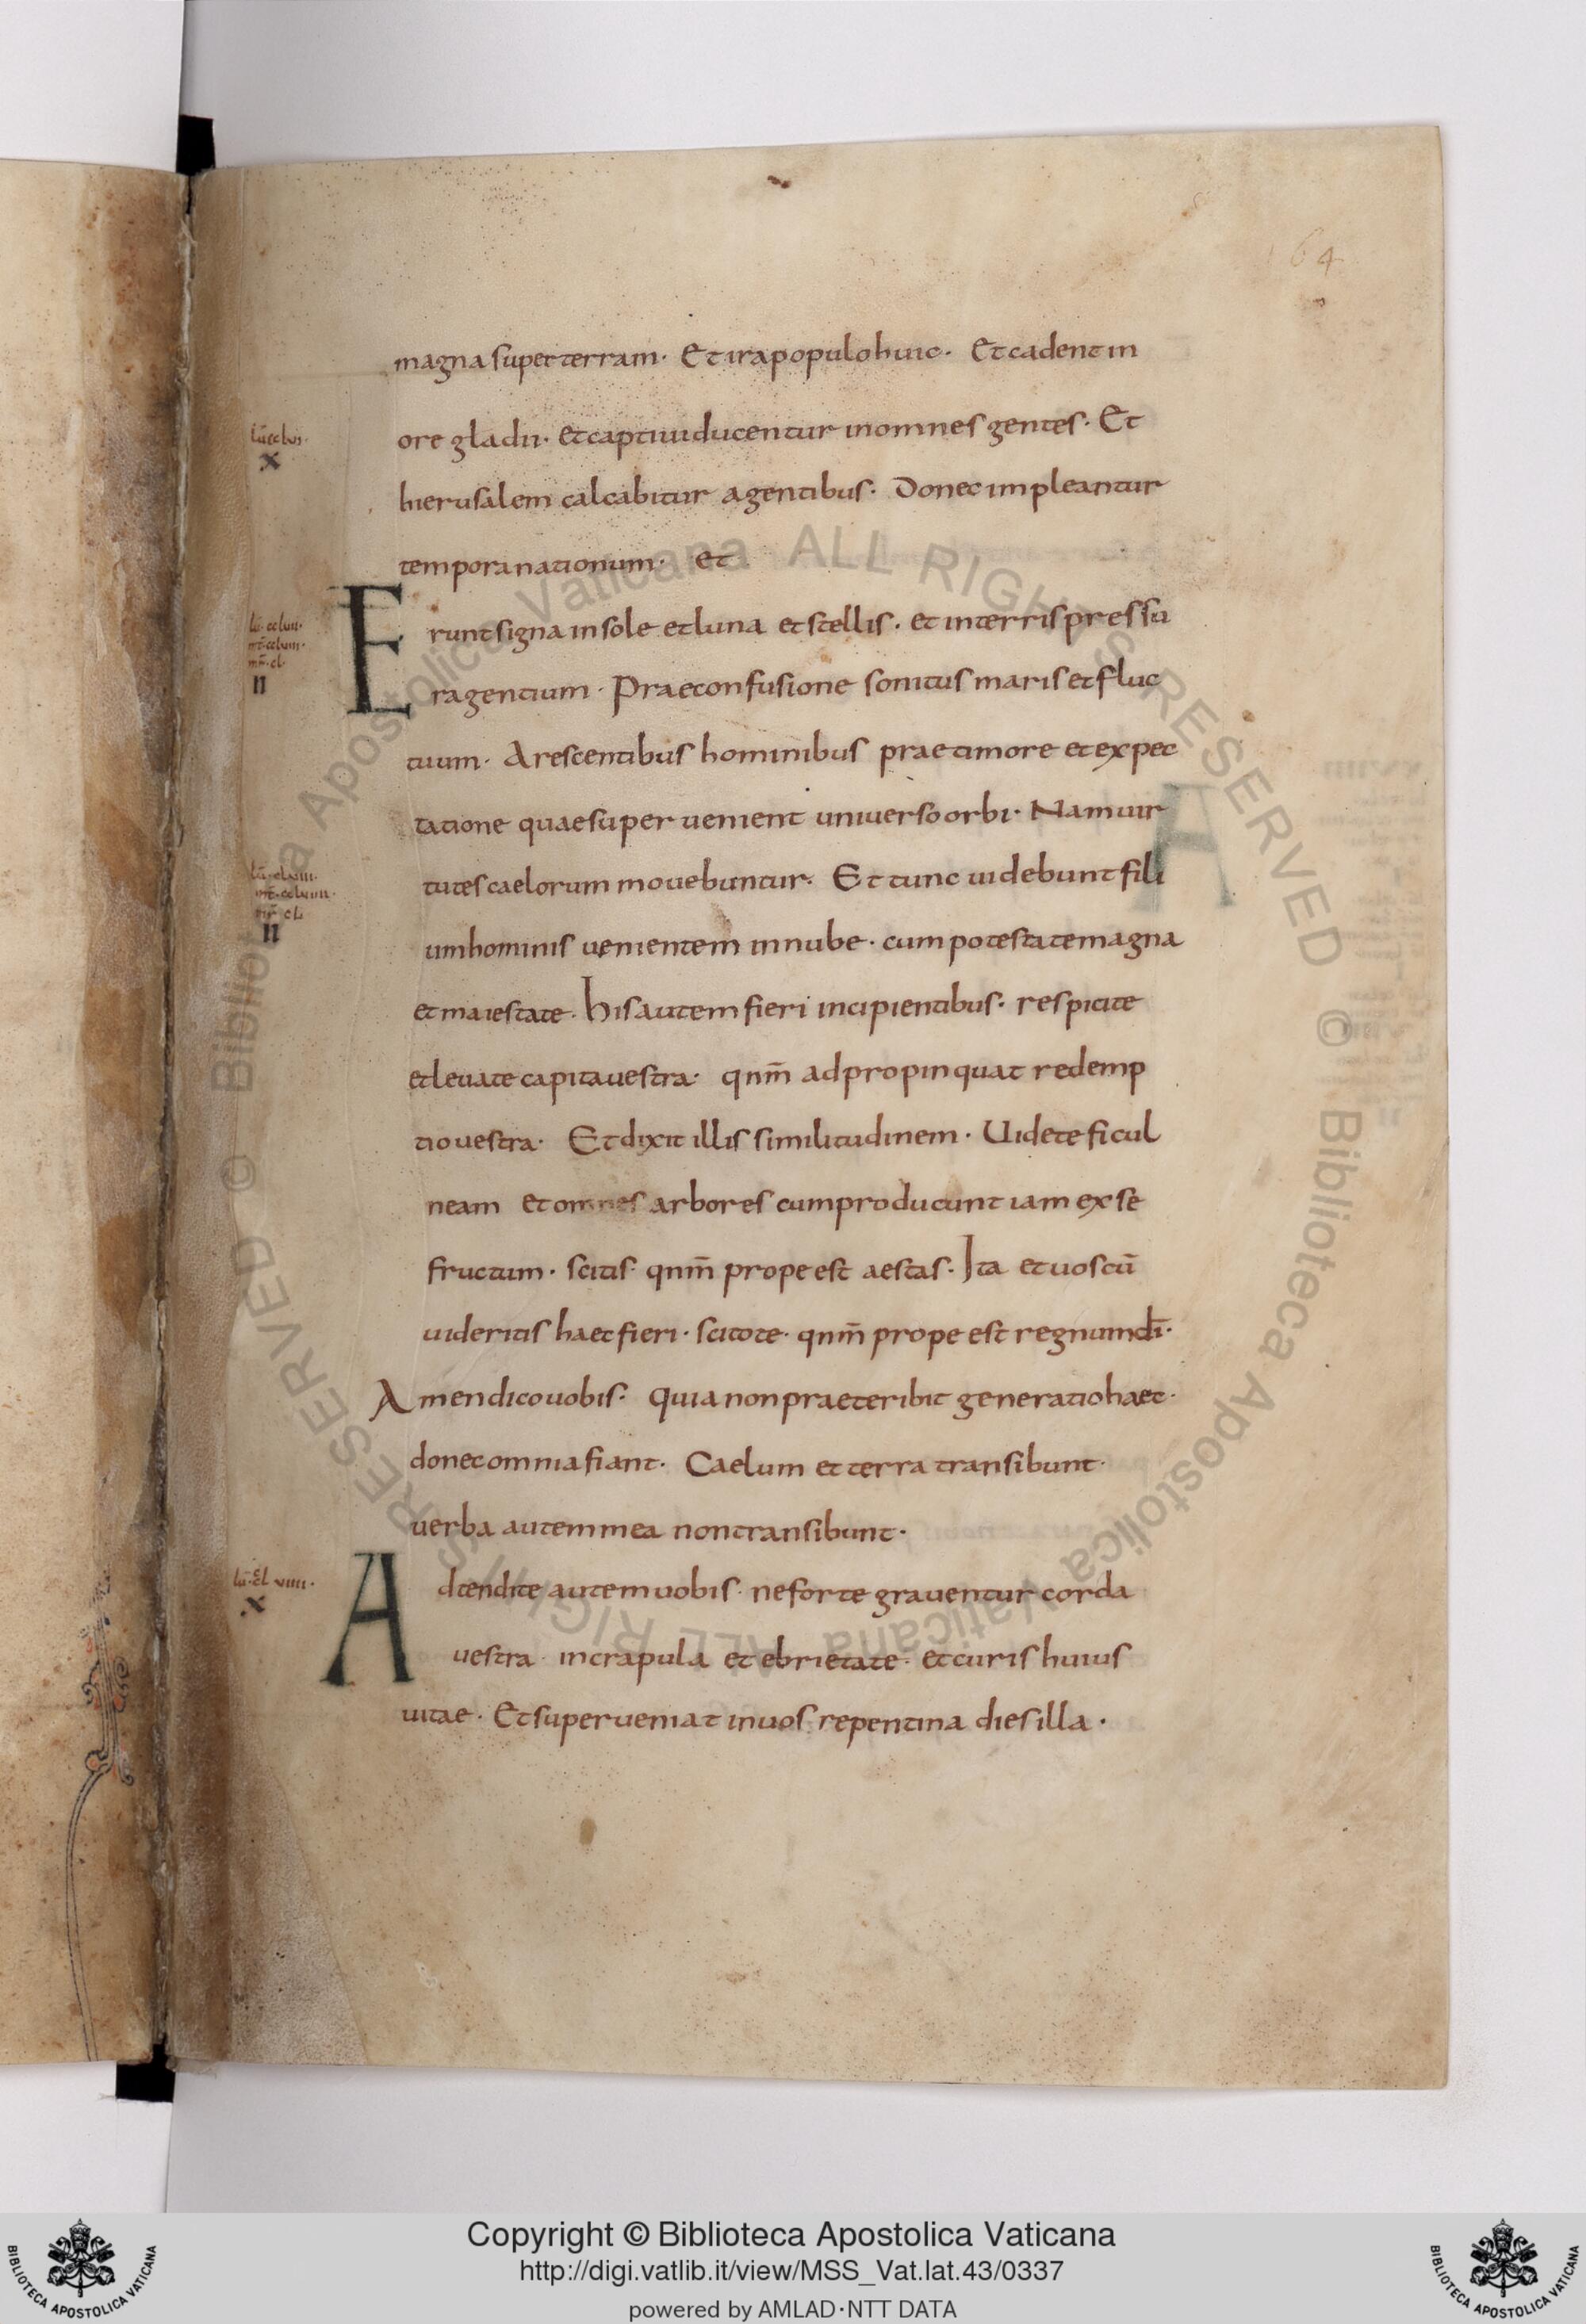 164
magna super terram· Et ira populo huic· Et cadent in
ore gladii· et captiui ducentur in omnes gentes· Et
hierusalem calcabitur a gentibus· Donec impleantur
tempora nationum· et
Erunt signa in sole et luna et stellis· et in terris pressu
ra gentium· Prae confusione sonitus maris et fluc
tuum· Arescentibus hominibus prae timore et expec
tatione quae superuenient uniuerso orbi· Nam uir
tutes caelorum mouebuntur· Et tunc uidebunt fili
um hominis uenientem in nube· cum potestate magna
et maiestate· his autem fieri incipientibus· respicite
et leuate capita uestra· qnm̄ adpropinquat redemp
tio uestra· Et dixit illis similitudinem· Uidete ficul
neam et omnes arbores cum producunt iam ex se
fructum· scitis· qnm̄ prope est aestas· Ita et uos cū
uideritis haec fieri· scitote· qnm̄ prope est regnum dī·
Amen dico uobis· quia non praeteribit generatio haec·
donec omnia fiant· Caelum et terra transibunt·
uerba autem mea non transibunt·
Adtendite autem uobis· ne forte grauentur corda
uestra· in crapula et ebrietate· et curis huius
uitae· Et superueniat in uos repentina dies illa·
X
II
II
X
Copyright © Biblioteca Apostolica Vaticana
http://digi.vatlib.it/view/MSS_Vat.lat.43/0337
powered by AMLAD·NTT DATA
BIBLIOTECA APOSTOLICA VATICANA
BIBLIOTECA APOSTOLICA VATICANA